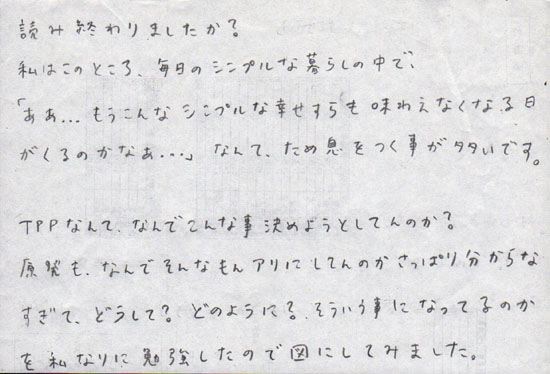 読み終わりましたか?
私はこのところ、毎日のシンプルな暮らしの中で、
「ああ...もうこんなシンプルな幸せすらも味わえなくなる日
がくるのかなあ・・・」なんて、ため息をつく事が多いです。
TPPなんて、なんでこんな事決めようとしてんのか?
原発も、なんでそんなもんアリにしてんのかさっぱり分からな
すぎて、どうして?どのように?そういう事になってるのか
を私なりに勉強したので図にしてみました。